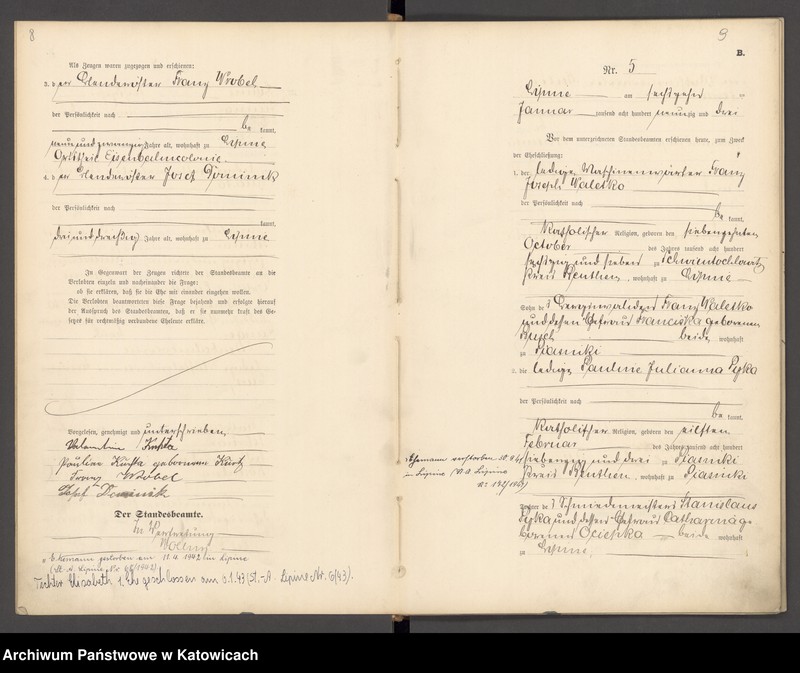 8
Als Zeugen waren zugezogen und erschienen:
3. der Blenderöster Franz Wrobel
der Persönlichkeit nach
be kannt,
neunundzwanzig Jahre alt, wohnhaft zu Lipine
Ortsteil Eisenbahncolonie
4. der Blenderöster Josef Dominik
der Persönlichkeit nach
kannt,
dreiunddreißig Jahre alt, wohnhaft zu Lipine
In Gegenwart der Zeugen richtete der Standesbeamte an die
Verlobten einzeln und nacheinander die Frage:
ob sie erklären, daß sie die Ehe mit einander eingehen wollen.
Die Verlobten beantworteten diese Frage bejahend und erfolgte hierauf
der Ausspruch des Standesbeamten, daß er sie nunmehr kraft des Ge-
setzes für rechtmäßig verbundene Eheleute erkläre.
Vorgelesen, genehmigt und unterschrieben
Valentin Kusta
Pauline Kusta geborenen
Franz Wrobel
Josef Dominik
Der Standesbeamte.
In Vertretung
Ehemann gestorben am 11.4.1942 in Lipine
(St. A. Lipine Nr.
Tochter Elisabeth 1. Ehe geschlossen am 6.1.43 (St.-A. Lipine Nr. 6/43).
9
B.
Nr. 5
Lipine am sechszehn
Januar tausend acht hundert neunzig und drei
Vor dem unterzeichneten Standesbeamten erschienen heute, zum Zweck
der Eheschließung:
1. der ledige Maschinenwärter Franz
Joseph Waletko
der Persönlichkeit nach
be kannt,
katholischer Religion, geboren den siebenzehnten
October des Jahres tausend acht hundert
sechszig und sieben zu Schwientochlowitz
Kreis Beuthen, wohnhaft zu Lipine
Sohn des Berginvaliden Franz Waletko
und dessen Ehefrau Franciska geborenen
beide wohnhaft
zu Piasniki
2. die ledige Pauline Julianna Pyka
der Persönlichkeit nach
be kannt,
katholischer Religion, geboren den eilften
Februar des Jahres tausend acht hundert
siebenzig und drei zu Piasniki
Kreis Beuthen, wohnhaft zu Piasniki
Ehemann verstorben
in Lipine (St. A. Lipine
Tochter des Schmiedemeisters Stanislaus
Pyka und dessen Ehefrau Catharina ge-
borenen Ociepka beide wohnhaft
zu Lipine
Archiwum Państwowe w Katowicach